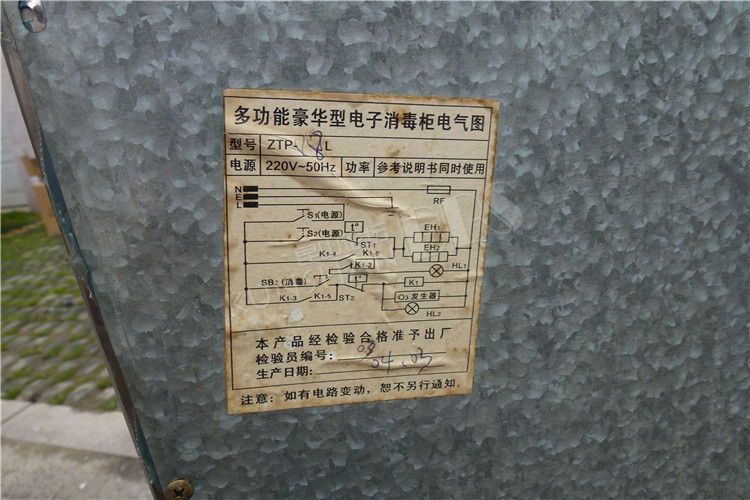 多功能豪华型电子消毒柜电气图
型号 ZTP- 8 L
电源 220V~50Hz 功率 参考说明书同时使用
N
E
L
RF
S1(电源)
S2(电源)
t°
ST1
EH1
EH2
K1-4
K1-2
HL1
SB2(消毒)
t°
K1
K1-3
K1-5
ST2
O3发生器
HL2
本产品经检验合格准予出厂
检验员编号: 03
生产日期: 04.03
注意: 如有电路变动, 恕不另行通知。